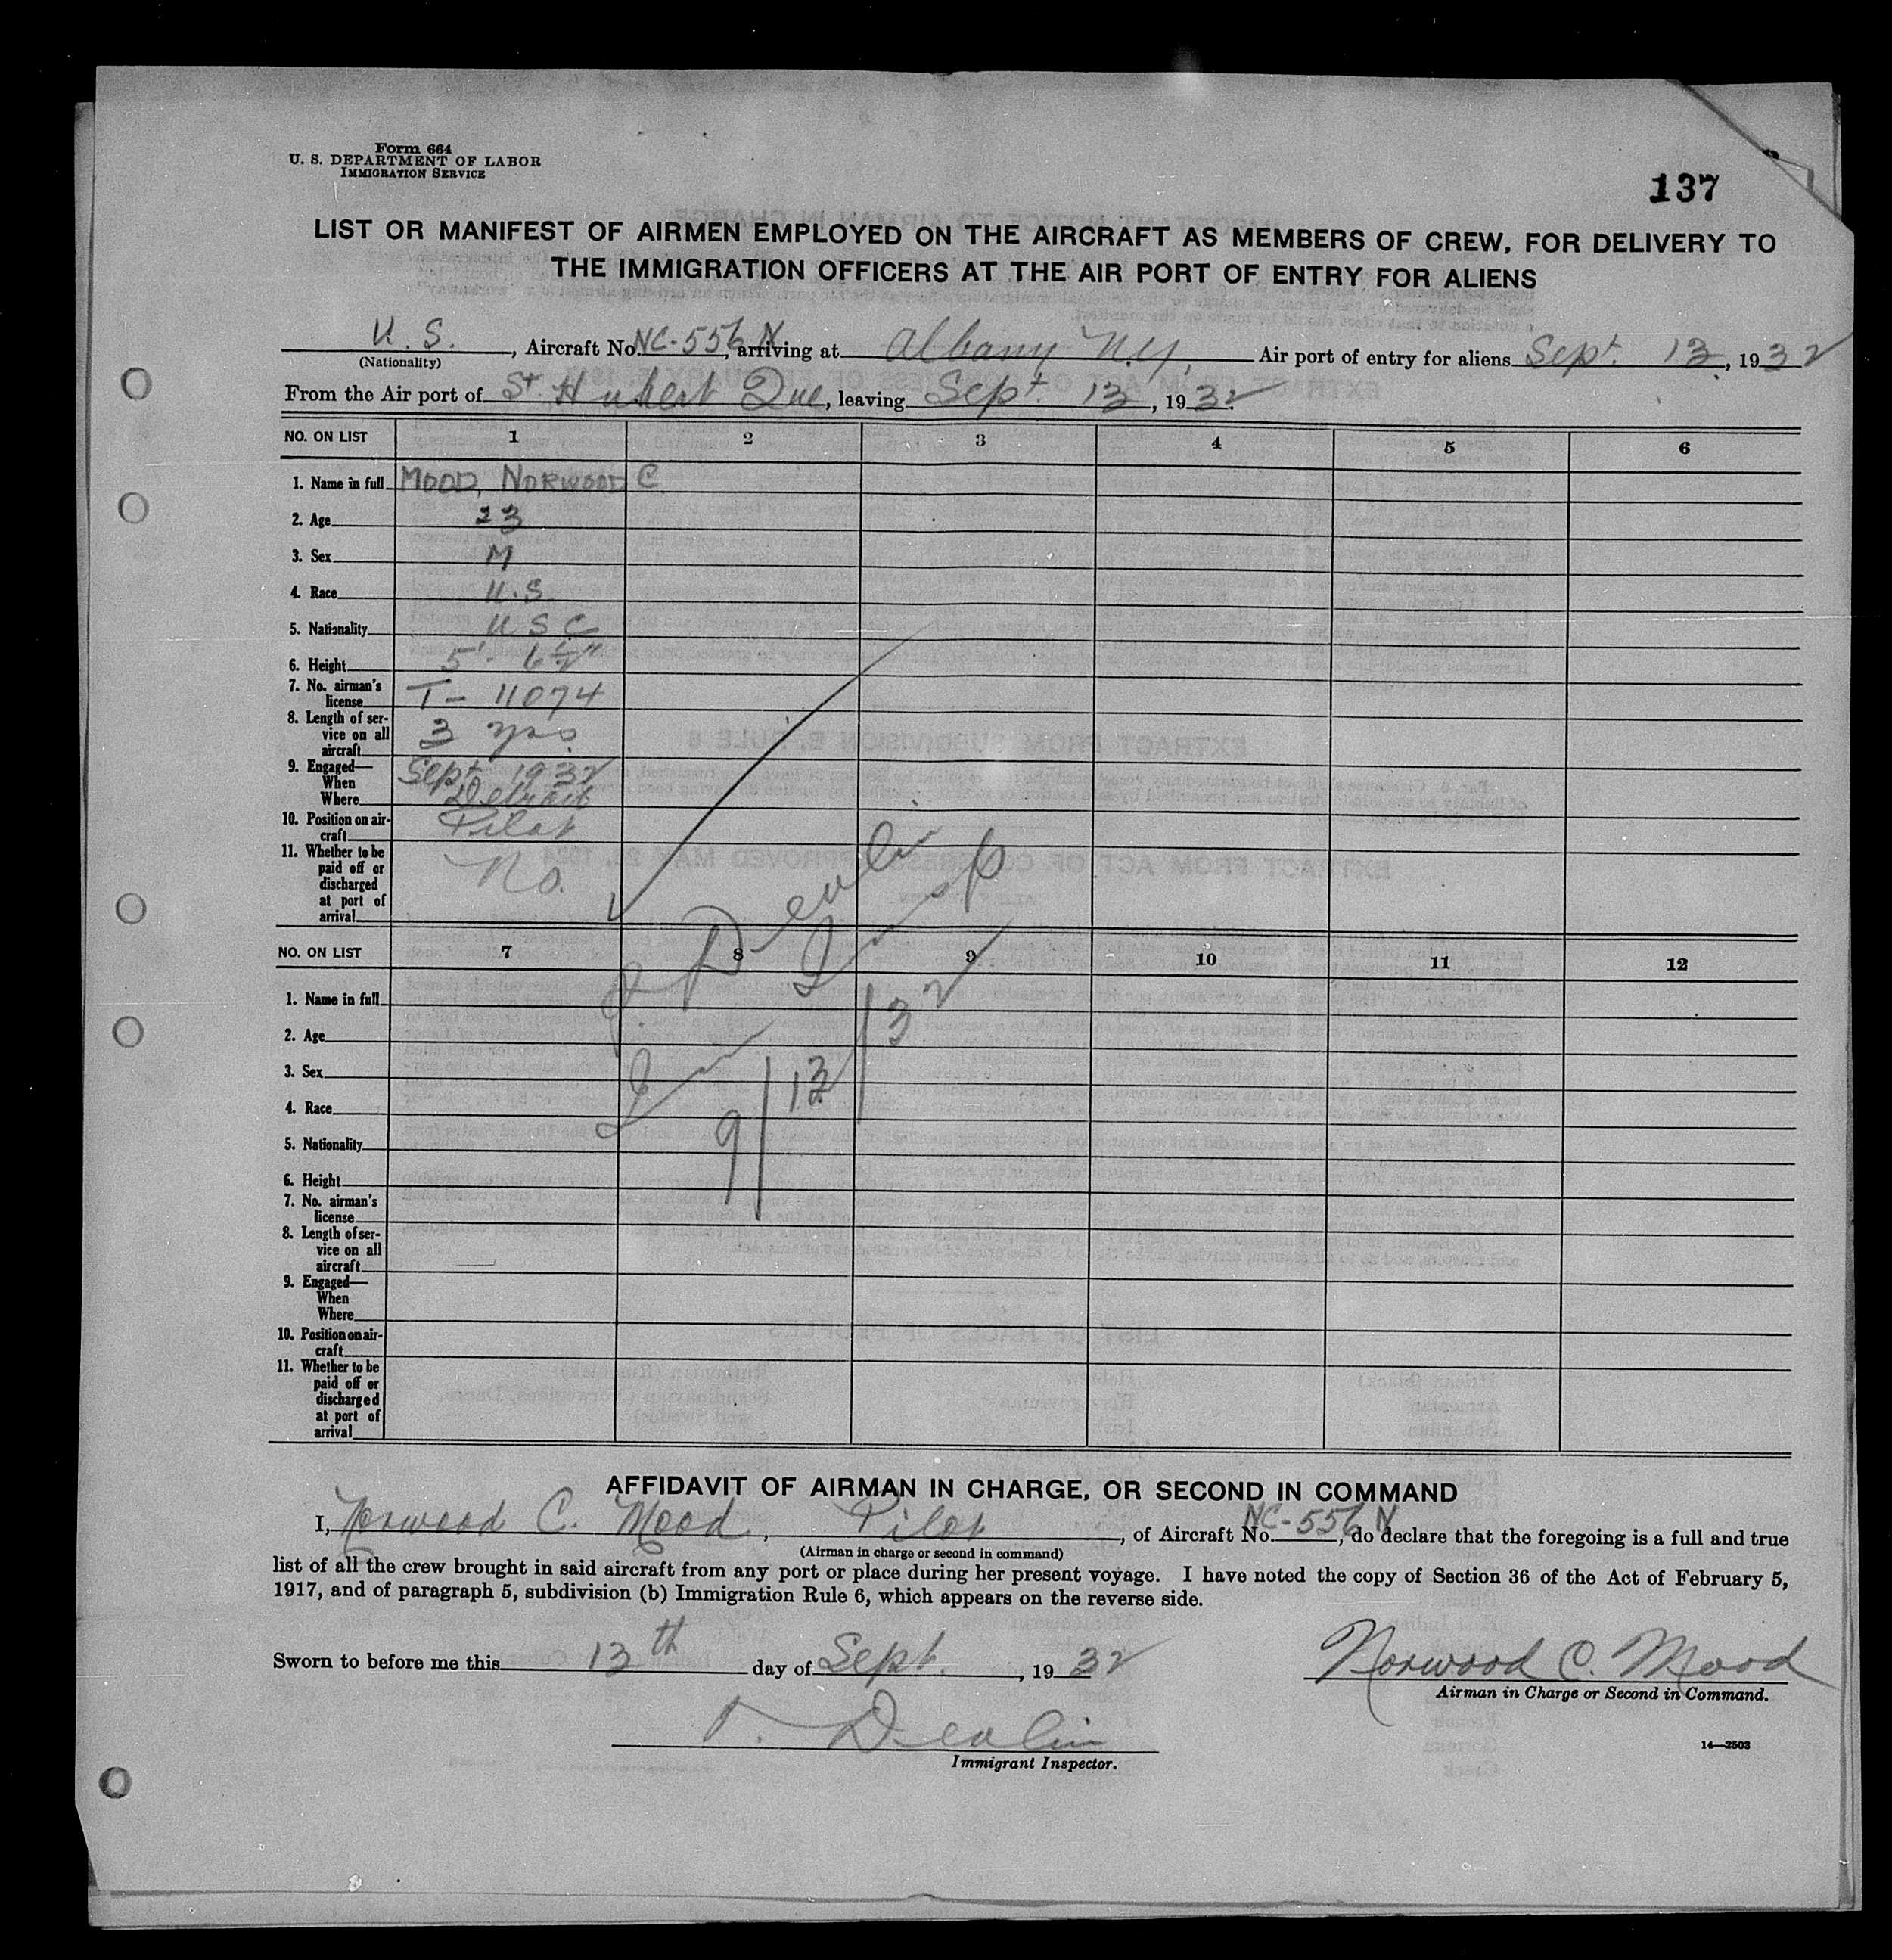 Form 664
U. S. DEPARTMENT OF LABOR
IMMIGRATION SERVICE
137
LIST OR MANIFEST OF AIRMEN EMPLOYED ON THE AIRCRAFT AS MEMBERS OF CREW, FOR DELIVERY TO
THE IMMIGRATION OFFICERS AT THE AIR PORT OF ENTRY FOR ALIENS
U. S., Aircraft No. NC-556N, arriving at Albany N.Y. Air port of entry for aliens Sept. 13, 1932
(Nationality)
From the Air port of St Hubert Que, leaving Sept. 13, 1932.
NO. ON LIST 1 2 3 4 5 6
1. Name in full MOOD, NORWOOD C.
2. Age 23
3. Sex M
4. Race U.S.
5. Nationality U S C
6. Height 5'- 6½"
7. No. airman's
license T- 11074
8. Length of ser-
vice on all
aircraft 3 yrs.
9. Engaged—
When Sept 1932
Where Detroit
10. Position on air-
craft Pilot
11. Whether to be
paid off or
discharged
at port of
arrival No.
Devlin
Insp
NO. ON LIST 7 8 9 10 11 12
9/13/32
1. Name in full
2. Age
3. Sex
4. Race
5. Nationality
6. Height
7. No. airman's
license
8. Length of ser-
vice on all
aircraft
9. Engaged—
When
Where
10. Position on air-
craft
11. Whether to be
paid off or
discharged
at port of
arrival
AFFIDAVIT OF AIRMAN IN CHARGE, OR SECOND IN COMMAND
I, Norwood C. Mood, Pilot, of Aircraft No. NC-556N, do declare that the foregoing is a full and true
(Airman in charge or second in command)
list of all the crew brought in said aircraft from any port or place during her present voyage. I have noted the copy of Section 36 of the Act of February 5,
1917, and of paragraph 5, subdivision (b) Immigration Rule 6, which appears on the reverse side.
Sworn to before me this 13th day of Sept., 1932
Norwood C. Mood
Airman in Charge or Second in Command.
Devlin
Immigrant Inspector.
14—2503